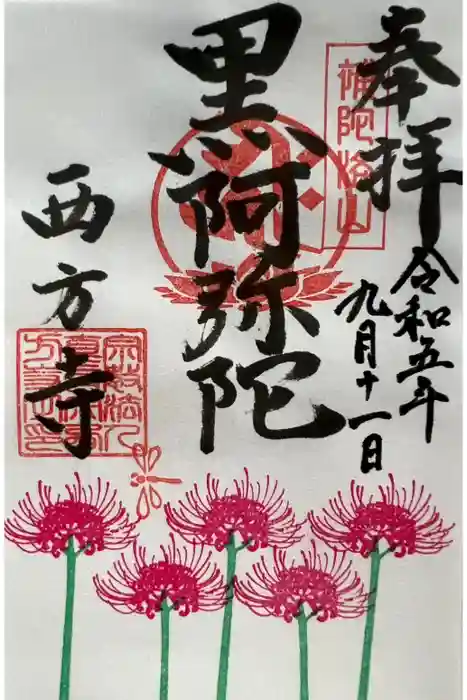 奉拝
令和五年
九月十一日
補陀洛山
黒阿弥陀
西方寺